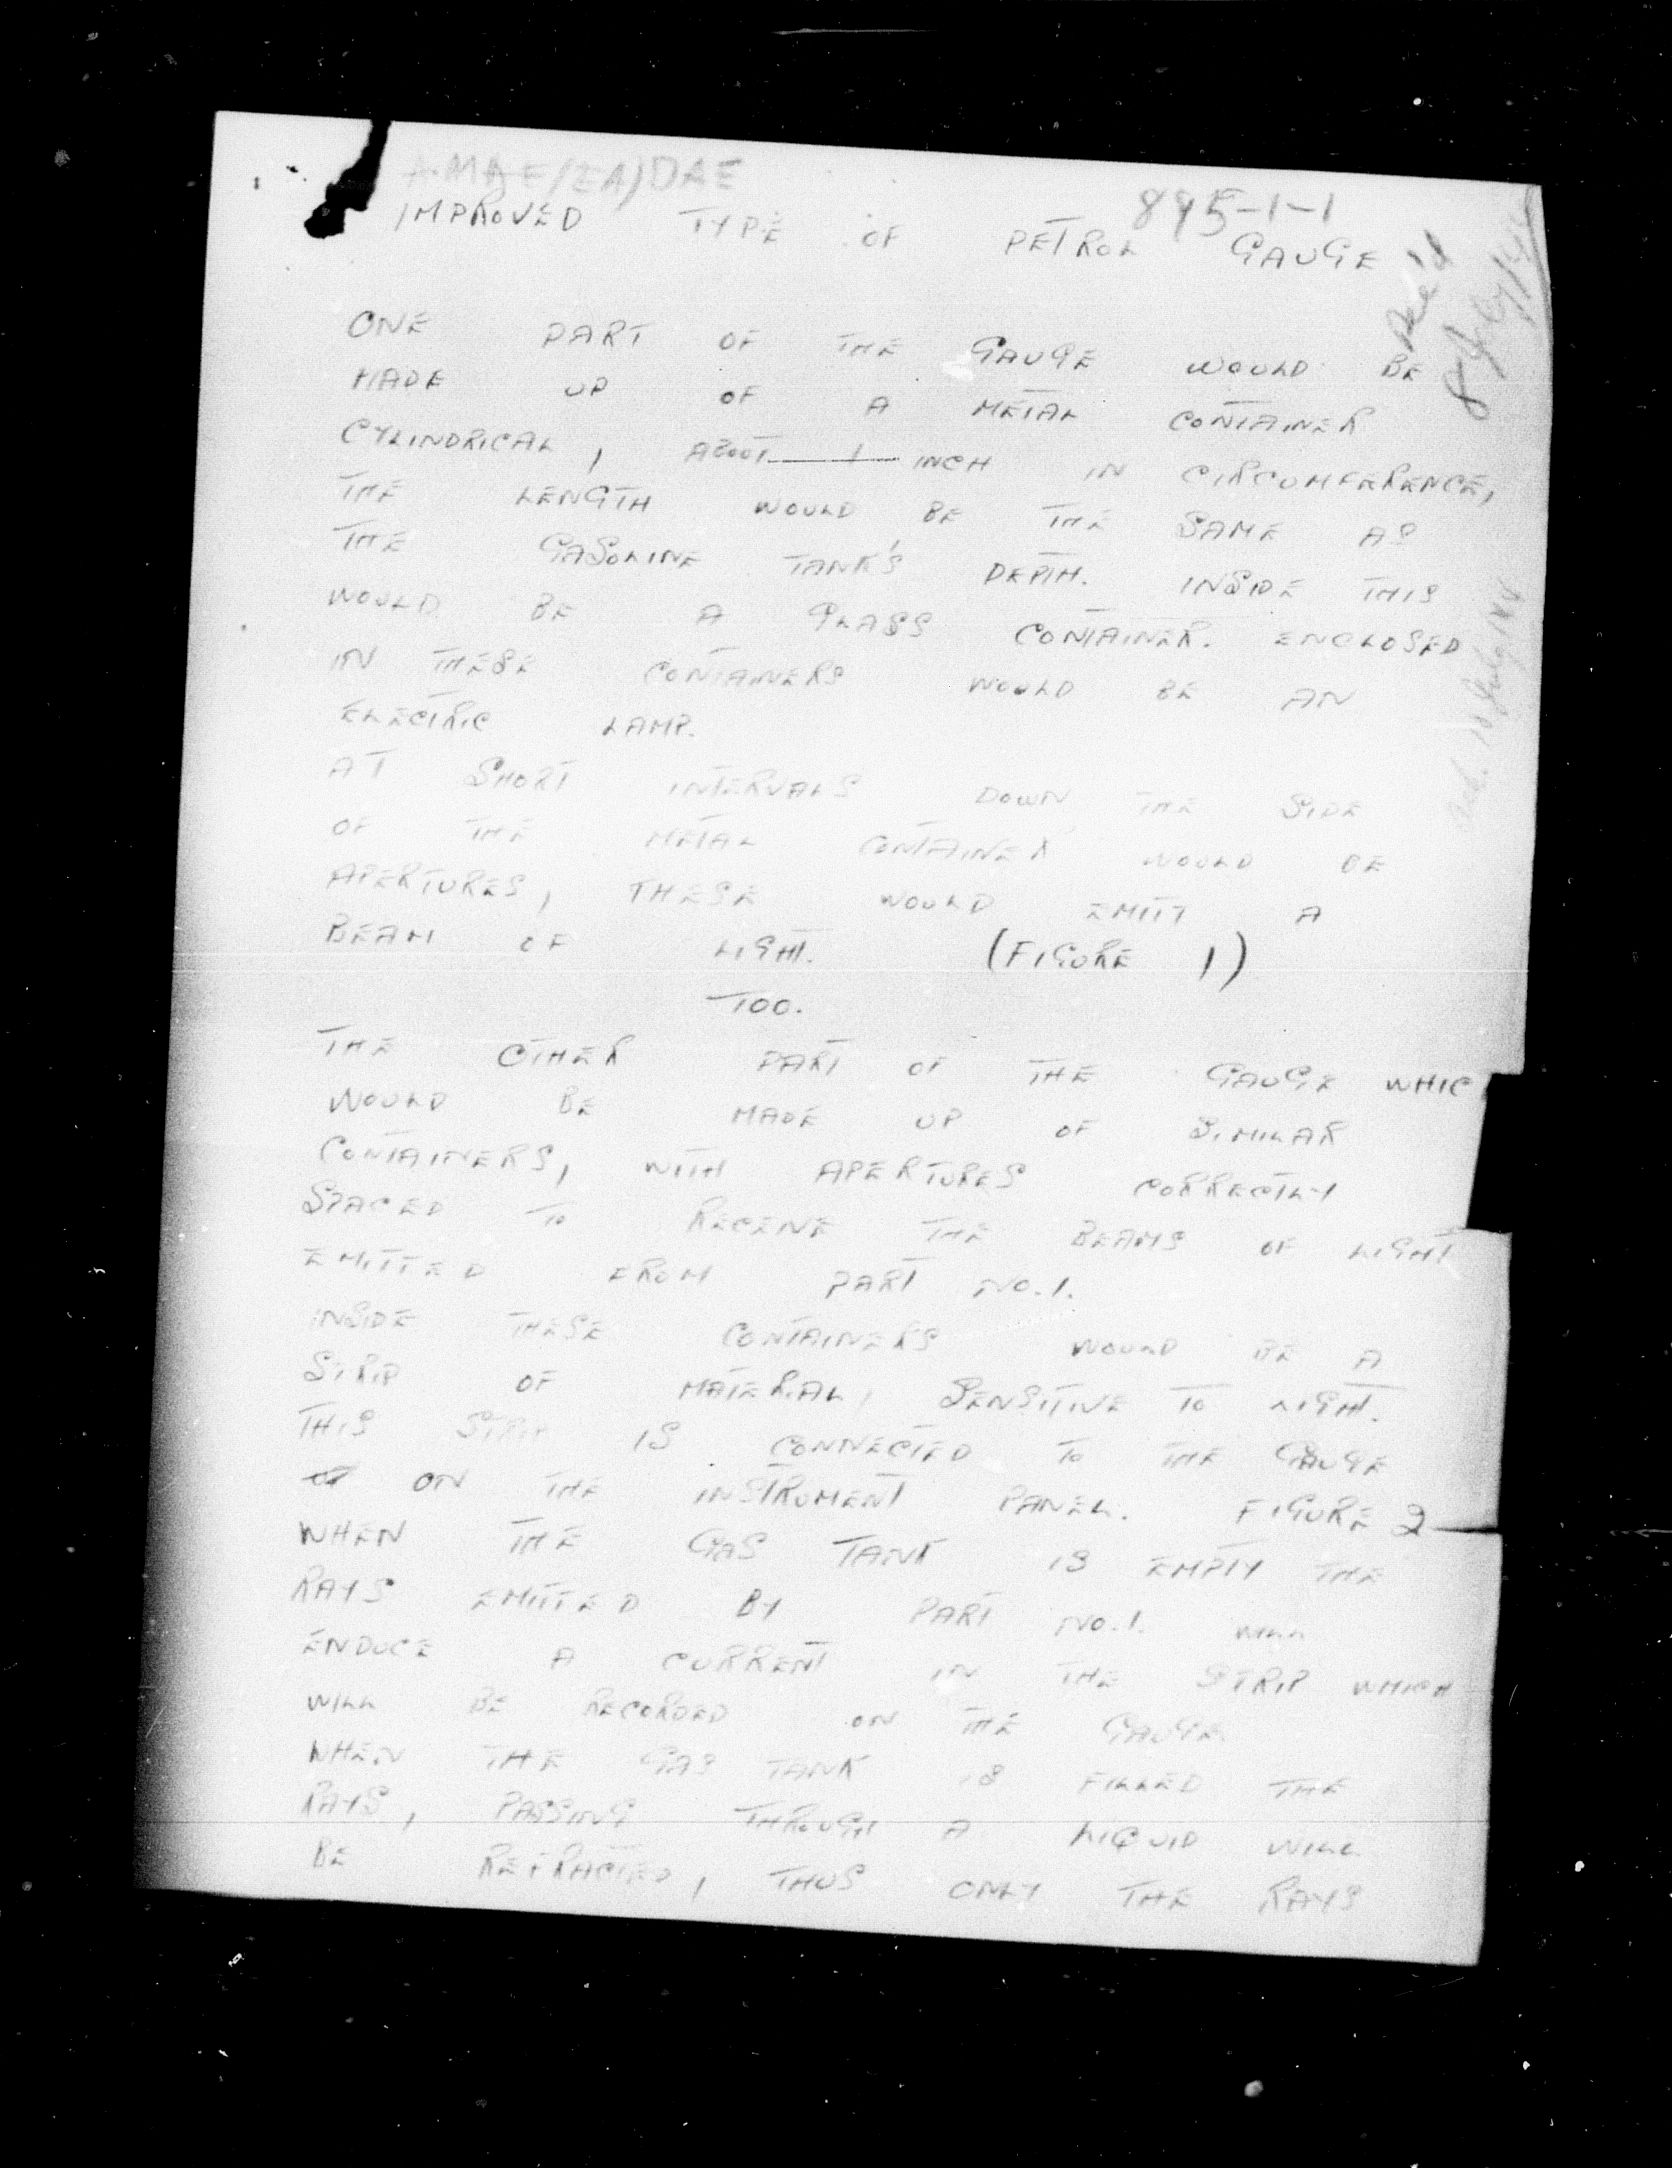 A.MAE/ZA)DAE
895-1-1
IMPROVED TYPE OF PETROL GAUGE
Rec'd
8 July/44
ONE PART OF THE GAUGE WOULD BE
MADE UP OF A METAL CONTAINER
CYLINDRICAL, ABOUT 1 INCH IN CIRCUMFERENCE,
THE LENGTH WOULD BE THE SAME AS
THE GASOLINE TANK'S DEPTH. INSIDE THIS
WOULD BE A GLASS CONTAINER. ENCLOSED
IN THESE CONTAINERS WOULD BE AN
ELECTRIC LAMP.
10 July/44
AT SHORT INTERVALS DOWN THE SIDE
OF THE METAL CONTAINER WOULD BE
APERTURES, THESE WOULD EMITT A
BEAM OF LIGHT. (FIGURE 1)
TOO.
THE OTHER PART OF THE GAUGE WHIC
WOULD BE MADE UP OF SIMILAR
CONTAINERS, WITH APERTURES CORRECTLY
SPACED TO RECEIVE THE BEAMS OF LIGHT
EMITTED FROM PART NO.1.
INSIDE THESE CONTAINERS WOULD BE A
STRIP OF MATERIAL, SENSITIVE TO LIGHT.
THIS STRIP IS CONNECTED TO THE GAUGE
ON THE INSTRUMENT PANEL. FIGURE 2
WHEN THE GAS TANK IS EMPTY THE
RAYS EMITTED BY PART NO.1. WILL
ENDUCE A CURRENT IN THE STRIP WHICH
WILL BE RECORDED ON THE GAUGE.
WHEN THE GAS TANK IS FILLED THE
RAYS, PASSING THROUGH A LIQUID WILL
BE REFRACTED, THUS ONLY THE RAYS